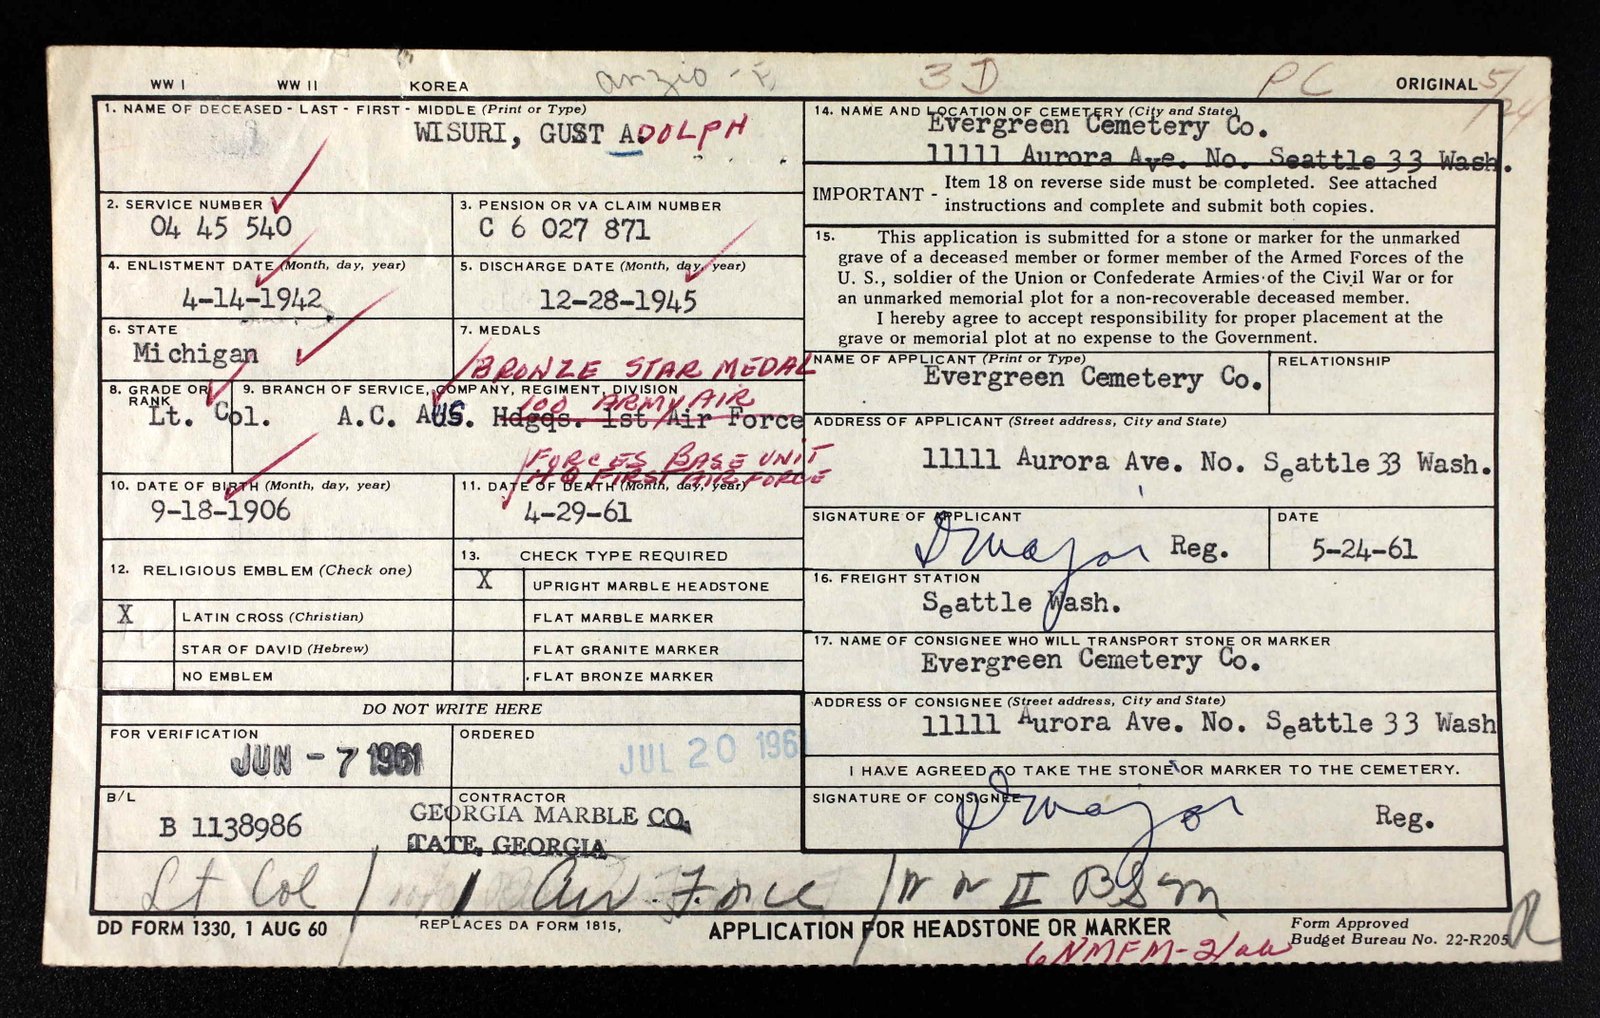 WW I WW II KOREA anzio - 3 D PC ORIGINAL 5/24
1. NAME OF DECEASED - LAST - FIRST - MIDDLE (Print or Type)
WISURI, GUST A.DOLPH
2. SERVICE NUMBER
04 45 540
3. PENSION OR VA CLAIM NUMBER
C 6 027 871
4. ENLISTMENT DATE (Month, day, year)
4-14-1942
5. DISCHARGE DATE (Month, day, year)
12-28-1945
6. STATE
Michigan
7. MEDALS
BRONZE STAR MEDAL
8. GRADE OR RANK
Lt. Col.
9. BRANCH OF SERVICE, COMPANY, REGIMENT, DIVISION
100 ARMY AIR
A.C. AUS. Hdgqs. 1st Air Force
FORCES BASE UNIT
HQ FIRST AIR FORCE
10. DATE OF BIRTH (Month, day, year)
9-18-1906
11. DATE OF DEATH (Month, day, year)
4-29-61
12. RELIGIOUS EMBLEM (Check one)
X LATIN CROSS (Christian)
STAR OF DAVID (Hebrew)
NO EMBLEM
13. CHECK TYPE REQUIRED
X UPRIGHT MARBLE HEADSTONE
FLAT MARBLE MARKER
FLAT GRANITE MARKER
FLAT BRONZE MARKER
DO NOT WRITE HERE
FOR VERIFICATION
JUN - 7 1961
ORDERED
JUL 20 196
B/L
B 1138986
CONTRACTOR
GEORGIA MARBLE CO.
TATE, GEORGIA
14. NAME AND LOCATION OF CEMETERY (City and State)
Evergreen Cemetery Co.
11111 Aurora Ave. No. Seattle 33 Wash.
IMPORTANT - Item 18 on reverse side must be completed. See attached
instructions and complete and submit both copies.
15. This application is submitted for a stone or marker for the unmarked
grave of a deceased member or former member of the Armed Forces of the
U. S., soldier of the Union or Confederate Armies of the Civil War or for
an unmarked memorial plot for a non-recoverable deceased member.
I hereby agree to accept responsibility for proper placement at the
grave or memorial plot at no expense to the Government.
NAME OF APPLICANT (Print or Type)
Evergreen Cemetery Co.
RELATIONSHIP
ADDRESS OF APPLICANT (Street address, City and State)
11111 Aurora Ave. No. Seattle 33 Wash.
SIGNATURE OF APPLICANT
D Major Reg.
DATE
5-24-61
16. FREIGHT STATION
Seattle Wash.
17. NAME OF CONSIGNEE WHO WILL TRANSPORT STONE OR MARKER
Evergreen Cemetery Co.
ADDRESS OF CONSIGNEE (Street address, City and State)
11111 Aurora Ave. No. Seattle 33 Wash
I HAVE AGREED TO TAKE THE STONE OR MARKER TO THE CEMETERY.
SIGNATURE OF CONSIGNEE
D Major Reg.
Lt Col / 1 Air Force / WW II BSM
DD FORM 1330, 1 AUG 60 REPLACES DA FORM 1815, APPLICATION FOR HEADSTONE OR MARKER
Form Approved
Budget Bureau No. 22-R205
R